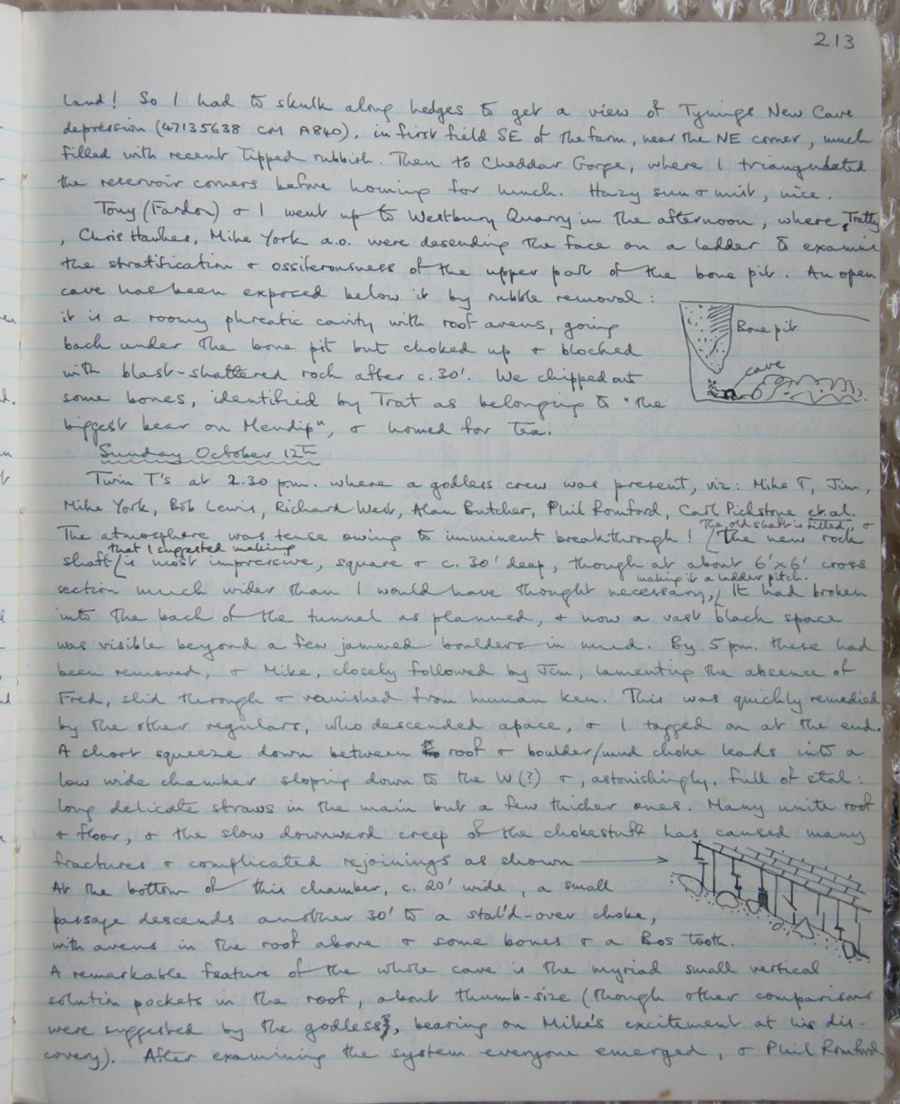 213
land! So I had to skulk along hedges to get a view of Tynings New Cave
depression (47135638 CM A840), in first field SE of the farm, near the NE corner, much
filled with recent tipped rubbish. Then to Cheddar Gorge, where I triangulated
the reservoir corners before homing for lunch. Hazy sun & mist, nice.
Tony (Fardon) & I went up to Westbury Quarry in the afternoon, where Tratty
, Chris Hawkes, Mike York a.o. were descending the face on a ladder to examine
the stratification & ossiferousness of the upper part of the bone pit. An open
cave has been exposed below it by rubble removal:
it is a roomy phreatic cavity with roof avens, going
back under the bone pit but choked up & blocked
with blast-shattered rock after c. 30'. We chipped out
some bones, identified by Trat as belonging to "the
biggest bear on Mendip", & homed for tea.
Bone pit
cave
Sunday October 12th
Twin T's at 2.30 pm. where a godless crew was present, viz: Mike T, Jim,
Mike York, Bob Lewis, Richard West, Alan Butcher, Phil Romford, Carl Pickstone et al.
The atmosphere was tense owing to imminent breakthrough! [The old shaft is filled, & the new rock
shaft [that I suggested making is most impressive, square & c. 30' deep, though at about 6'x6' cross
section much wider than I would have thought necessary, making it a ladder pitch. It had broken
into the back of the tunnel as planned, & now a vast black space
was visible beyond a few jammed boulders in mud. By 5 pm. these had
been removed, & Mike, closely followed by Jim, lamenting the absence of
Fred, slid through & vanished from human ken. This was quickly remedied
by the other regulars, who descended apace, & I tagged on at the end.
A short squeeze down between roof & boulder/mud choke leads into a
low wide chamber sloping down to the W(?) &, astonishingly, full of stal:
long delicate straws in the main but a few thicker ones. Many unite roof
& floor, & the slow downward creep of the chokestuff has caused many
fractures & complicated rejoinings as shown
At the bottom of this chamber, c. 20' wide, a small
passage descends another 30' to a stal'd-over choke,
with avens in the roof above & some bones & a Bos tooth.
A remarkable feature of the whole cave is the myriad small vertical
solution pockets in the roof, about thumb-size (though other comparisons
were suggested by the godless, bearing on Mike's excitement at his dis-
covery). After examining the system everyone emerged, & Phil Romford